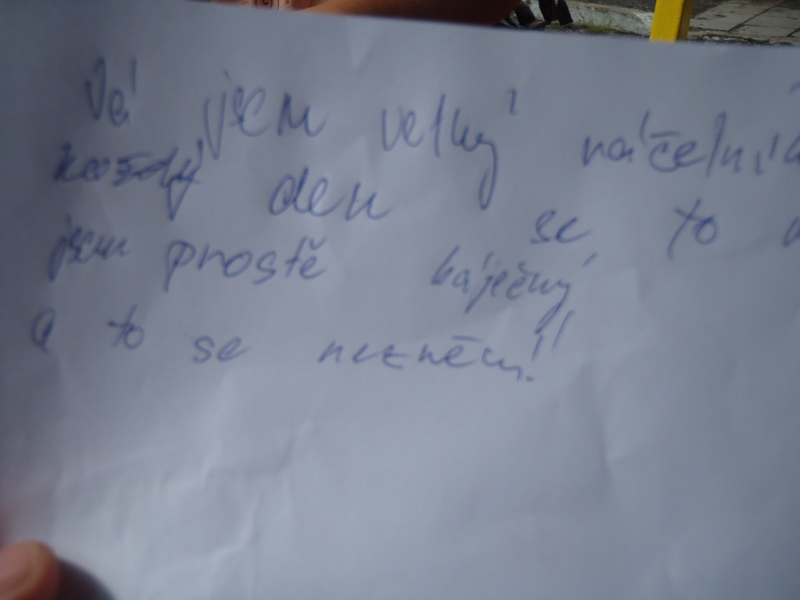 já jsem velký náčelník
každý den se to
jsem prostě báječný
a to se nezmění!!